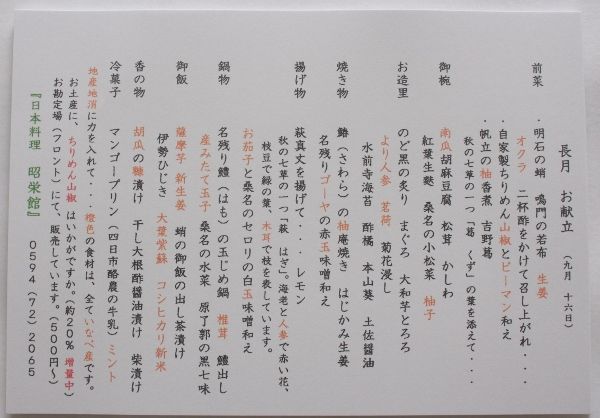 長月　お献立　（九月　十六日）
前菜　・明石の蛸　鳴門の若布　生姜
オクラ　二杯酢をかけて召し上がれ・・・
・自家製ちりめん山椒とピーマン和え
・帆立の柚香煮　吉野葛
秋の七草の一つ「葛　くず」の葉を添えて・・・
御椀　南瓜胡麻豆腐　松茸　かしわ
紅葉生麩　桑名の小松菜　柚子
お造里　のど黒の炙り　まぐろ　大和芋とろろ
より人参　茗荷　菊花浸し
水前寺海苔　酢橘　本山葵　土佐醤油
焼き物　鰆（さわら）の柚庵焼き　はじかみ生姜
名残りゴーヤの赤玉味噌和え
揚げ物　萩真丈を揚げて・・・　レモン
秋の七草の一つ「萩　はぎ」。海老と人参で赤い花、
枝豆で緑の葉、木耳で枝を表しています。
お茄子と桑名のセロリの白玉味噌和え
鍋物　名残り鱧（はも）の玉じめ鍋　椎茸　鱧出し
産みたて玉子　桑名の水菜　原了郭の黒七味
御飯　薩摩芋　新生姜　蛸の御飯の出し茶漬け
伊勢ひじき　大葉紫蘇　コシヒカリ新米
香の物　胡瓜の糠漬け　干し大根酢醤油漬け　柴漬け
冷菓子　マンゴープリン（四日市酪農の牛乳）ミント
地産地消に力を入れて・・・橙色の食材は、全ていなべ産です。
お土産に、ちりめん山椒　はいかがですか。（約２０％　増量中）
お勘定場（フロント）にて、販売しています。（５００円～）
『日本料理　昭栄館』　０５９４（７２）２０６５